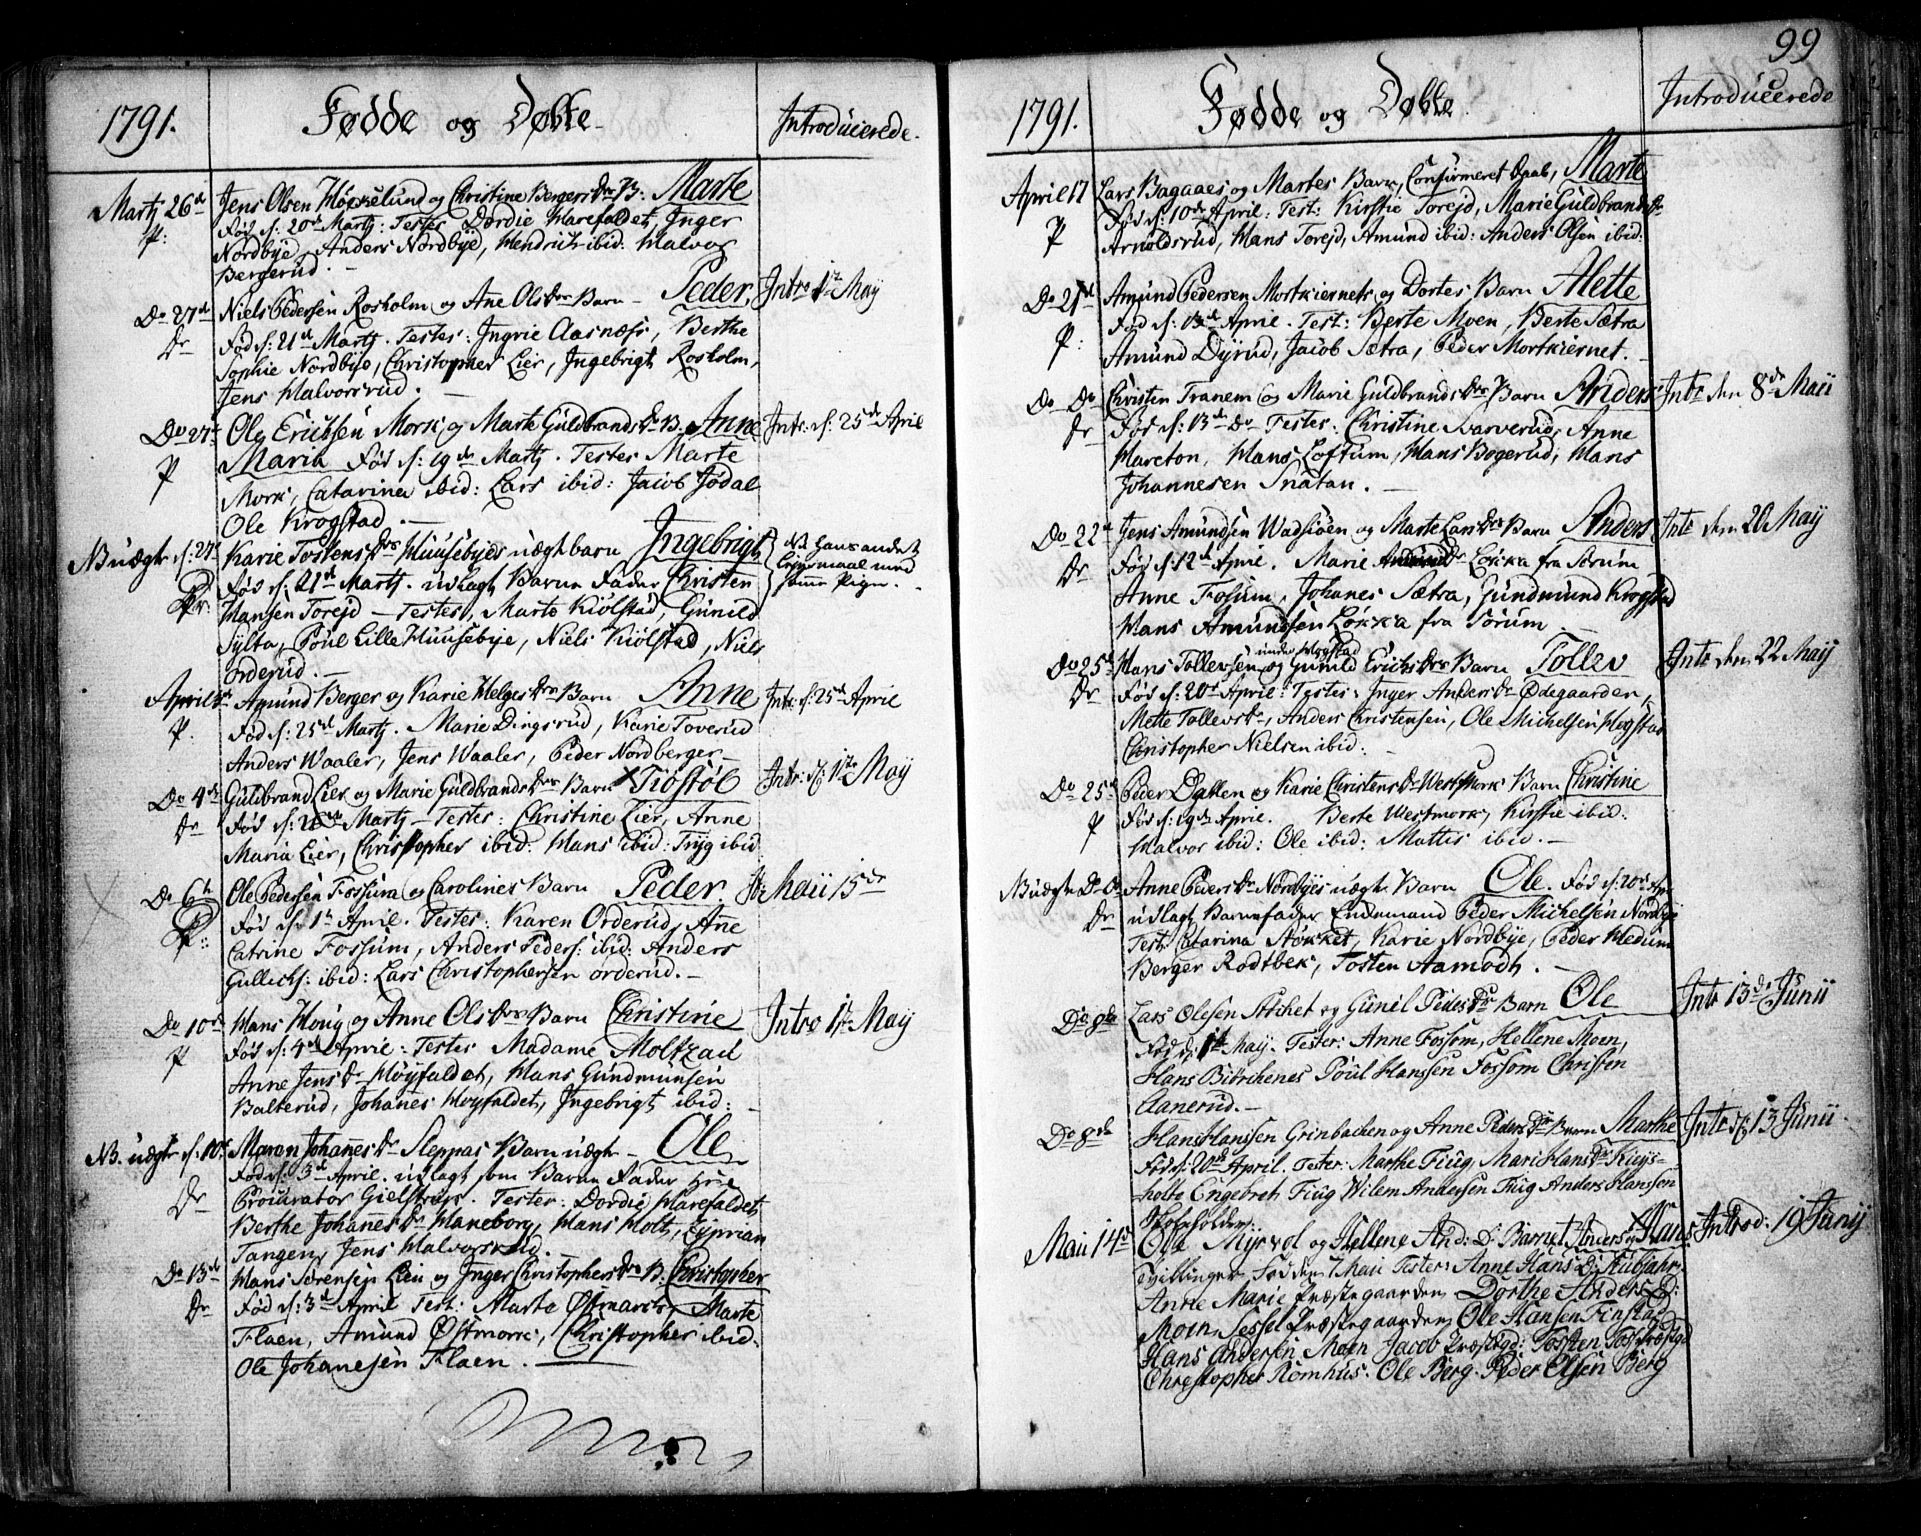 1791. Fødde og Døbte Introducerede.
Martj 26de Jens Olsen Høkkelund og Christine Bergersdr B: Marte
P: Fød d: 20de Martj: Testes Dordie Harefaldet, Inger
Nordbye, Anders Nordbye, Hendrich ibid: Halvor
Bergerud.
Do 27de Niels Pedersen Rosholm og Ane Olsdr Barn Peder Intro 1te May
Fød d: 21de Martj. Testes: Ingrie Aasnæss, Berthe
Sophie Nordbye, Christopher Lier, Ingebrigt Rosholm,
Jens Halvorsrud.
Do 27de Ole Erichsen Mork og Marte Guldbrandsdr B. Anne Intr: d: 25de April
P Maria Fød d: 19de Martj. Testes Marte
Mork, Catarina ibid: Lars ibid: Jacob Jødal
Ole Krogstad.
NB uægte d: 27de Karie Tostensdr Huusebyes uægte barn Ingebrigt det hans andet
Fød d: 21de Martj. udlagt Barne Fader Christen Leiermaal med
Hansen Toreid Testes, Marte Kiølstad, Gunild samme Pige.
Sylta, Poul Lille Huusebye, Niels Kiølstad, Niels
Orderud.
April 1ste Amund Berger og Karie Helgesdr Barn Anne Intr: d: 25de April
P. Fød d: 25de Martj. Marie Dingsrud, Karie Toverud
Anders Waaler, Jens Waaler, Peder Nordberger
Do 4de Guldbrand Lier og Marie Guldbrandsdr Barn Tiostøl Intr: d: 1te May
Fød d: Martj Testes: Christine Lier, Anne
Maria Lier, Christopher ibid: Hans ibid: Tryg ibid
Do 6te Ole Pedersen Fossum og Carolines Barn Peder. Maii 15de
Fød d: 1te April. Testes: Karen Orderud, Ane
Catrine Fossum, Anders Peders: ibid: Anders
Gullichs: ibid: Lars Christophersen Orderud.
Do 10de Hans Houg og Anne Olsdr Barn Christine Intro 1te May
P Fød d: 4de April: Testes Madame Moltzau
Anne Jensdr Høyfaldet, Hans Gundmunsen
Balterud, Johanes Høyfaldet, Ingebrigt ibid:
NB. uægte d: 10de Maren Johanesdr Sleppas Barn uægte Ole
Fød d: 3de April. udlagt som Barne Fader
Procurator Gielstrup. Testes: Dordie Harefaldet
Berthe Johanesdr Haneborg, Hans Holt, Cyprian
Tangen, Jens Halvorsrud.
Do 13de Hans Sørensen Lien og Inger Christophersdr B. Christopher
Fød d: 3de April Test: Marte Østmark, Marte
Flaen, Amund Østmork, Christopher ibid.
Ole Johanesen Flaen.
99
1791. Fødde og Døbte. Introducerede
April 17 Lars Bagaaes og Martes Barn, Confirmeret Daab, Marte
P Fød d: 10de April: Test: Kirstie Toreid, Marie Guldbrandsdr
Arnoldsrud, Hans Toreid, Amund ibid: Anders Olsen ibid:
Do 21de Amund Pedersen Mortkiernets og Dortes Barn Alette
P: Fød d: 13de April. Test: Berte Moen, Berte Sætra
Amund Dyrud, Jacob Sætra, Peder Mortkiernet.
Do Do Christen Tranem og Marie Guldbrandsdr Barn Anders Intr den 8de Maii
Fød d: 13de Do Testes: Christine Svarverud, Anne
Mareton, Hans Loftum, Hans Bøgerud, Hans
Johannesen Snatan.
Do 22de Jens Amundsen Wadsiøen og Marte Larsdr Barn Anders Intr den 20 May
Fød d: 12de April. Marie Løkka fra Sørum
Anne Fosum, Johanes Sætra, Gundmund Krogstad
Hans Amundsen Løkka fra Sørum
under Mogstad
Do 25de Hans Tollefsen og Gunild Erichsdr Barn Tollev Intr den 22 May
Fød d: 20de April: Testes: Inger Andersdr Ødegaarden,
Mette Tollevsdr, Anders Christensen, Ole Michelsen Mogstad
Christopher Nielsen ibid:
Do 25de Peder Dakken og Karie Christensdr Westmork Barn Christine
P Fød d: 19de April. Berte Westmork, Kirstie ibid:
Halvor ibid: Ole ibid: Mattis ibid.
NB uægte Do Do Anne Pedersdr Nordbyes uægte Barn Ole. Fød d: 20de Apr
udlagt Barnefader Enkemand Peder Michelsen Nordbye
Test: Catarina Støkket, Karie Nordbye, Peder Medum
Berger Rodtbek, Tosten Aamodt.
Do 8de Lars Olesen Støchet og Gunil Pedersdr Barn Ole Intr 13de Junii
Fød d: 1te May. Testes: Anne Fossom, Hellene Moen,
Hans Bibrehenes Poul Hanssen Fossom Christen
Aanerud.
Do 8de Hans Hanssen Grinbachen og Anne Pedersdr Barn Marthe Intr d: 13 Junii
Fød d: 20de April. Testes: Marthe Tiug, Mari Hansdr
Engebreth Tiug Wilem Andersen Tiug Anders Hanssen
Skoleholder.
Maii 14de Ole Myrvol og Hellene And: Dr Barnet Anders og Hans Introd: 19 Junij
Tvillinger Fød den 7 Mai Testes: Anne Hans Dr
Anne Marie Præstegaarden Dorthe Anders D:
Moen, Sessel Præstegaarden Ole Hansen Finstad
Hans Andersen Moen Jacob Præstegd: Tosten Præstegd
Christopher Romhus. Ole Berg. Peder Olsen Berg